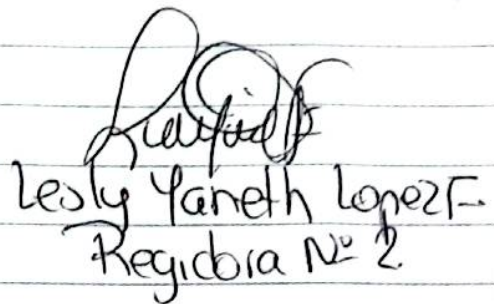 Lesly Yaneth Lopez F.
Regidora Nº 2